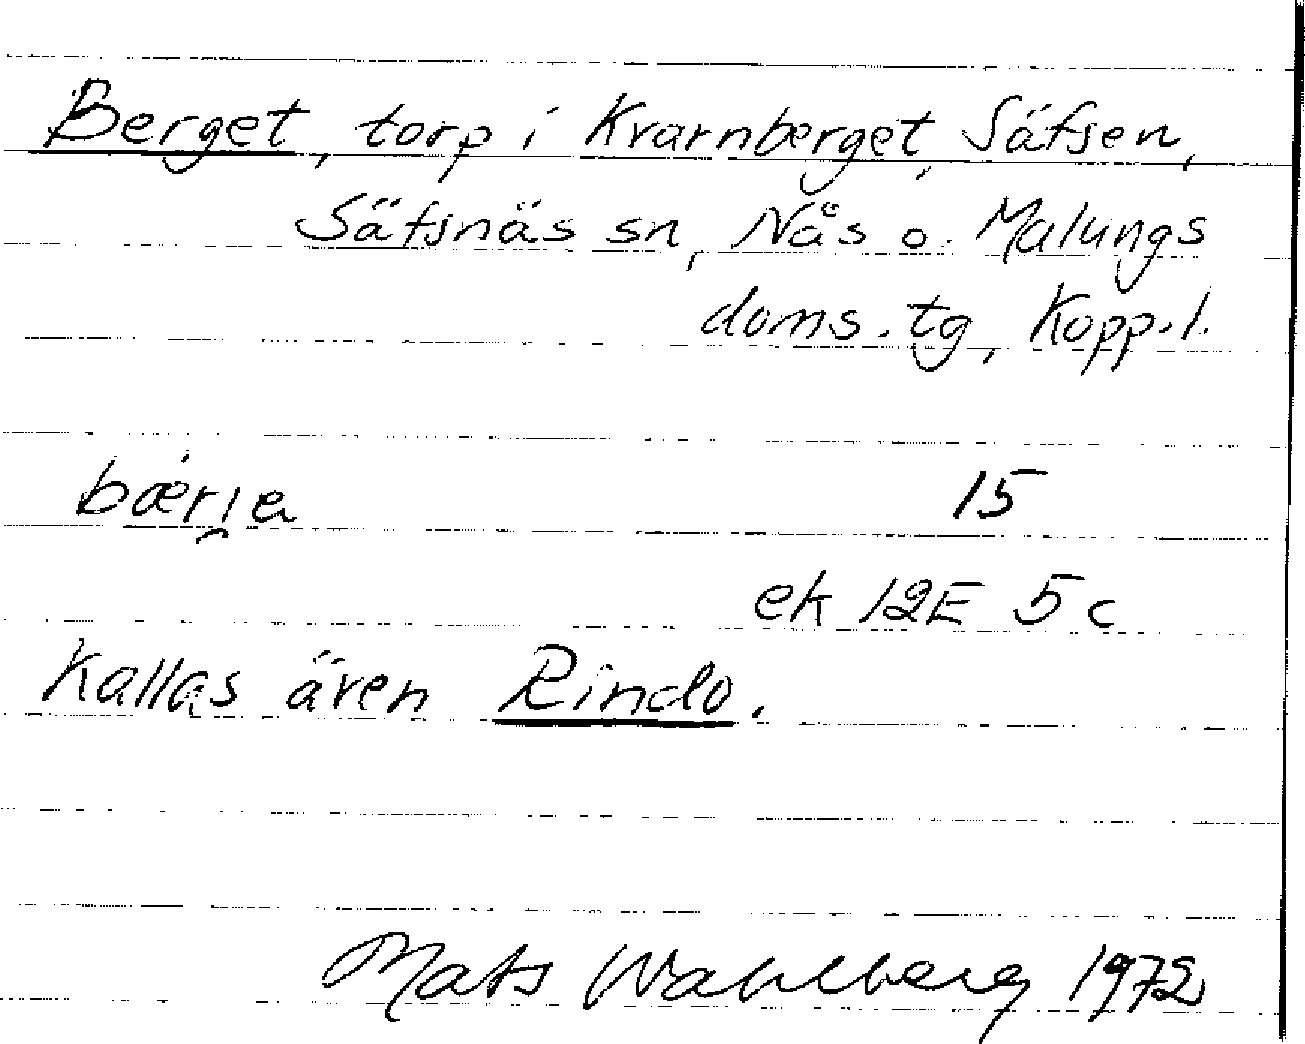 Berget, torp i Kvarnberget, Säfsen,
Säfsnäs sn, Nås o. Malungs
doms. tg, Kopp. l.
bær̯ıa 15
ek 12E 5c
Kallas även Rindo.
Mats Wahlberg 1972